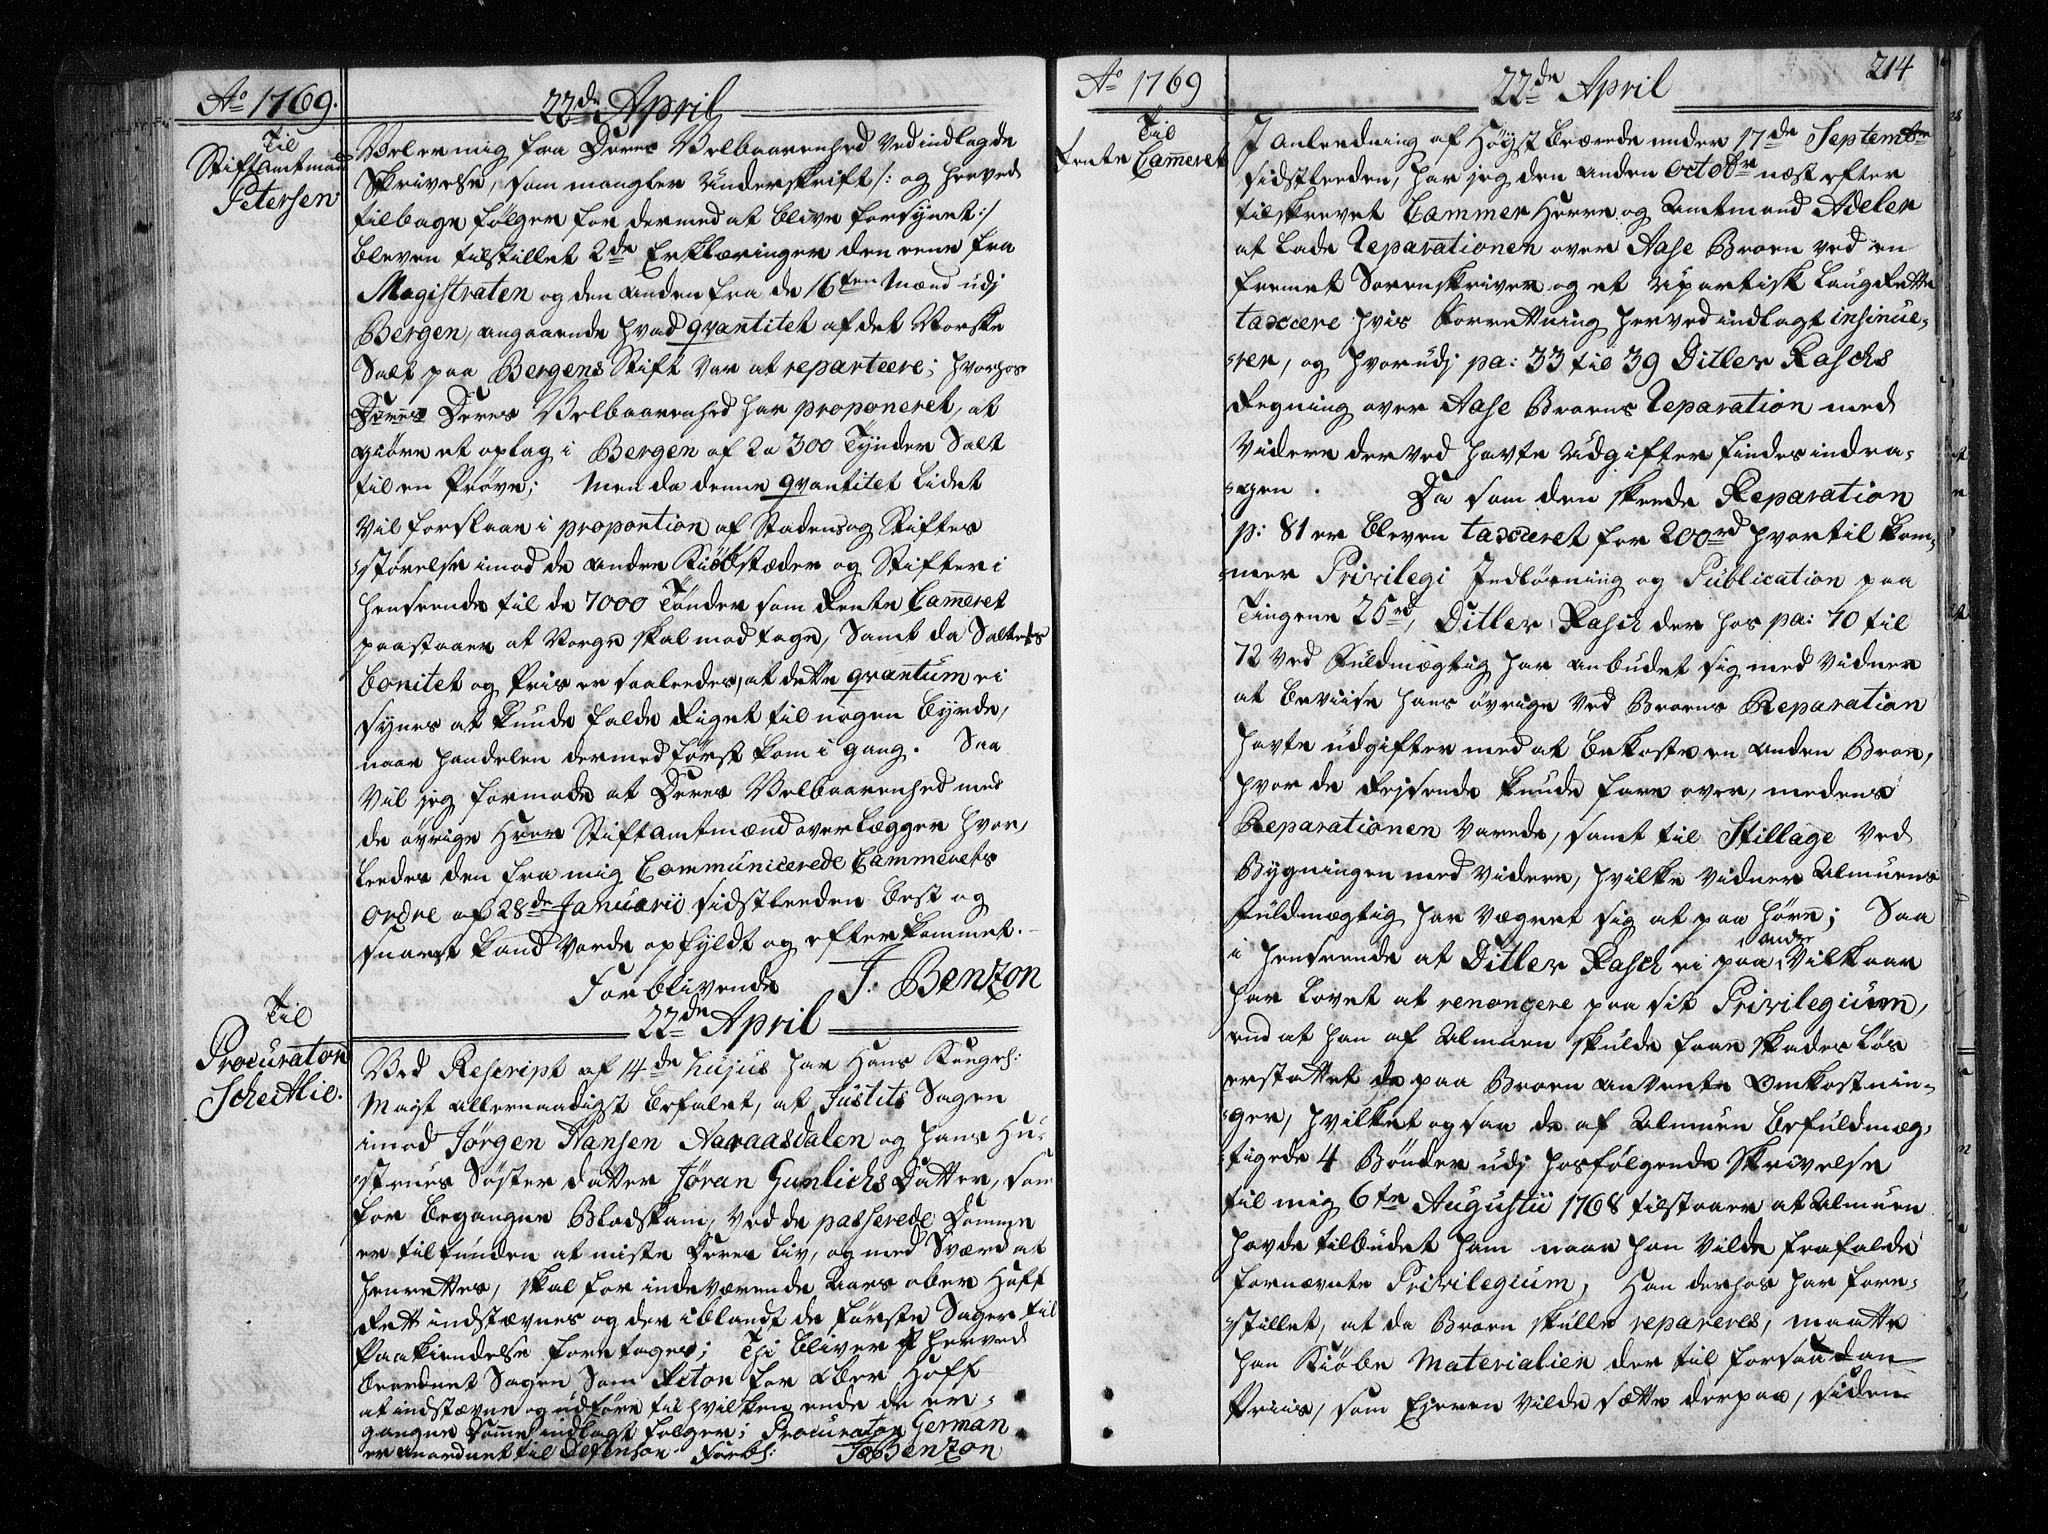 Ao 1769.
22de April
Til
Stiftamtmand
Petersen
Vel er mig fra Deres Velbaarenhed ved indlagde
Skrivelse, som mangler Underskrift /: og herved
tilbage følger for dermed at blive forsynet :/
bleven tilstillet 2de Erklæringer den eene fra
Magistraten og den anden fra de 16ten Mænd udj
Bergen, angaaende hvad qvantitet af det Norske
Salt paa Bergens Stift var at reparteere; hvorhos
Deres Velbaarenhed har proponeret, at
giøre et oplag i Bergen af 2 a 300 Tynder Salt
til en Prøve; Men da denne qvantitet lidet
vil forslaae i propontion af Stadens og Stiftets
størrelse imod de andre Kiøbstæder og Stifter i
henseende til de 7000 Tønder som Rente Cammeret
paastaaer at Norge skal modtage, Samt da Saltets
bonitet og Pris er saaleedes, at dette qvantum ei
synes at kunde falde Riget til nogen byrde,
naar handelen dermed først kom i gang. Saa
vil jeg formode at Deres Velbaarenhed med
de øvrige Hrer Stiftamtmænd overlægger hvor-
leedes den fra mig Communicerede Cammerets
Ordre af 28de Januarii sidstleeden best og
snarest kand vorde opfyldt og efterkommet.
Forblivende J. Benzon
22de April
Til
Procurator
Scheitlie.
Ved Rescript af 14de hujus har Hans Kongel:
Mayt allernaadigst befalet, at Justits Sagen
imod Jørgen Hansen Aavaasdalen og hans Hu-
strues Søster datter Jøran Gunlichs Datter, som
for begangne Blodskam, ved de passerede Domme
er tilfunden at miste Deres liv, og med Sværd at
henrettes, skal for indeværende Aars ober Hoff
Rett indstævnes og der iblandt de første Sager til
Paakiendelse foretages; Thi bliver herved
beordnet Sagen Som Actor for Ober Hoff
at indstævne og udføre til hvilken ende de er-
gangne Domme indlagt følger; Procurator German
er anordnet til Defensor. Forbl: J. Benzon
Ao 1769
22de April
214
Til
Rente Cammeret
I Anleedning af Høyst bærede under 17de Septembr
sidstleeden, har jeg den anden Octobr næst efter
tilskrevet Cammer Herre og Amtmand Adeler
at lade Reparationen over Aase Broen ved en
fremet Sorenskriver og et upartisk laugRette
taxere hvis Forrettning herved indlagt insinue-
rer, og hvorudj pa: 33 til 39 Ditler Raschs
Regning over Aase Broens Reparation med
videre derved havte Udgifter findes indra-
gen. Da som den skeede Reparation
p: 81 er bleven taxeret for 200rd hvortil kom-
mer Privilegi Indløsning og Publication paa
Tingene 25rd, Ditler Rasch der hos pa: 70 til
72 ved Fuldmægtig har anbudet sig med Vidner
at beviise hans øvrige ved Broens Reparation
havte udgifter med at bekoste en anden Broe,
hvor de Rejsende kunde fare over, medens
Reparationen varede, samt til Stillage ved
Bygningen med videre, hvilke vidner Almuens
fuldmægtig har vægret sig at paa høre; Saa
i henseende at Ditler Rasch ei paa andre Vilkaar
har lovet at renongere paa sit Privilegium,
end at han af Almuen skulde faae skadesløs
erstattet de paa Broen anvente Omkostnin-
ger, hvilket ogsaa de af Almuen befuldmæg-
tigede 4 Bønder udj hosfølgende Skrivelse
til mig 6te Augustii 1768 tilstaaer at Almuen
havde tilbudet ham naar han vilde frafalde
fornævnte Privilegium, Han derhos har fore-
stillet, at da Broen skulle repareres, maatte
han kiøbe Materialien der til for saadan
Priis, som Ejeren vilde sætte derpaa, siden